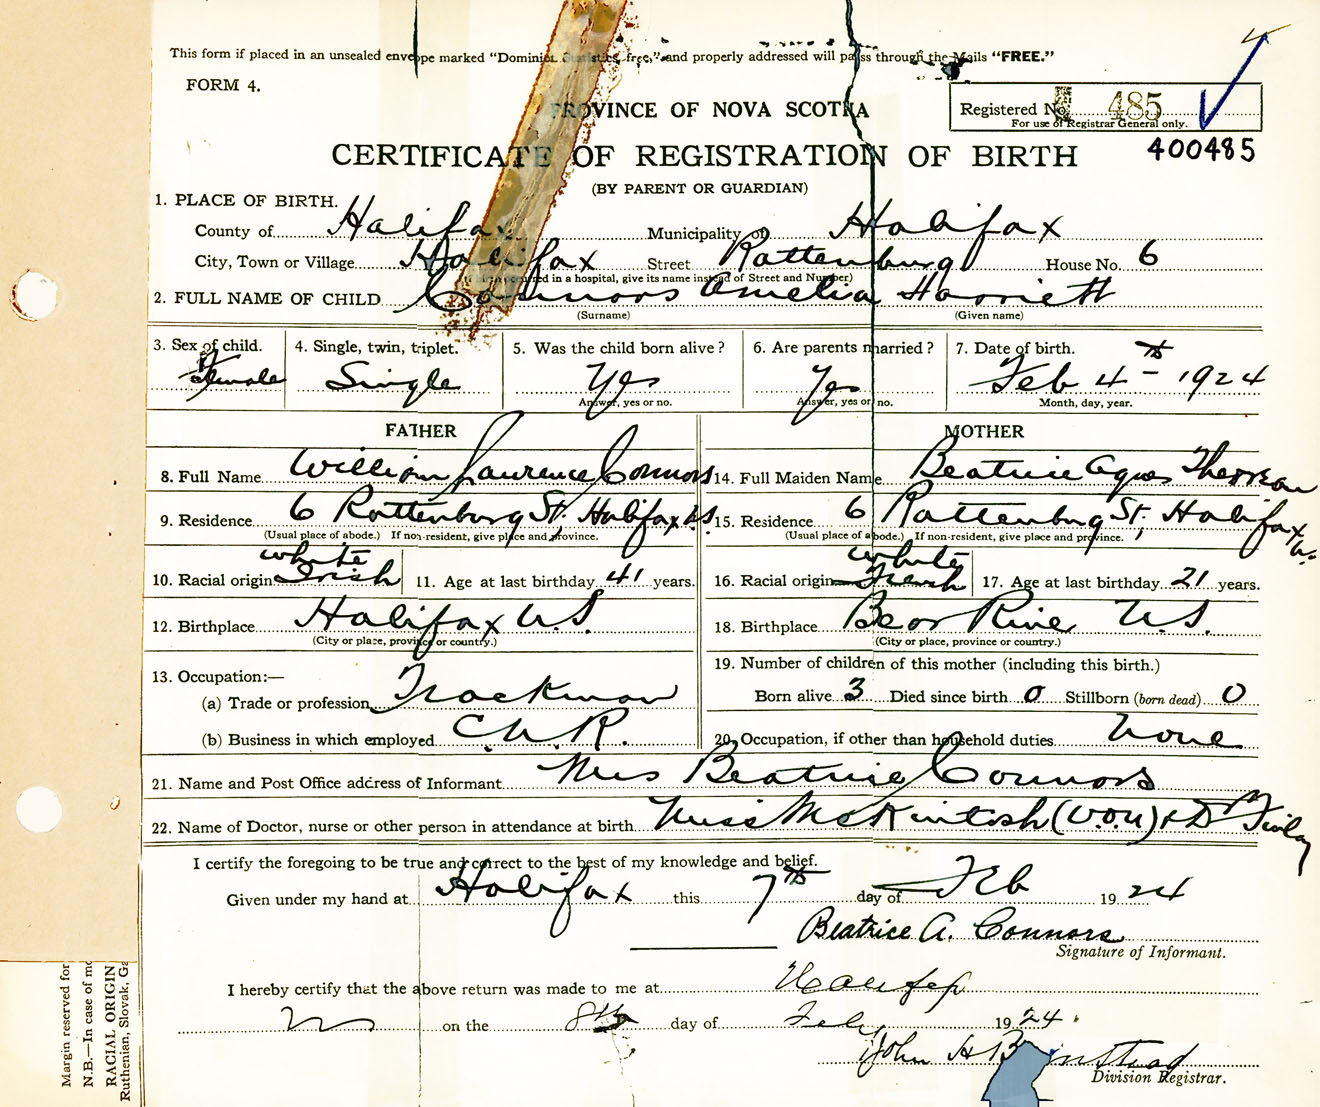 This form if placed in an unsealed envelope marked "Dominion Statistics, free," and properly addressed will pass through the Mails "FREE."
FORM 4.
PROVINCE OF NOVA SCOTIA
Registered No. 485
For use of Registrar General only.
CERTIFICATE OF REGISTRATION OF BIRTH
400485
(BY PARENT OR GUARDIAN)
1. PLACE OF BIRTH.
County of Halifax Municipality of Halifax
City, Town or Village Halifax Street Rottenburg House No. 6
in a hospital, give its name instead of Street and Number)
2. FULL NAME OF CHILD Connors Amelia Harriett
(Surname) (Given name)
3. Sex of child. 4. Single, twin, triplet. 5. Was the child born alive? 6. Are parents married? 7. Date of birth.
Female Single Yes Yes Feb 4th 1924
Answer, yes or no. Answer, yes or no. Month, day, year.
FATHER MOTHER
8. Full Name William Laurence Connors 14. Full Maiden Name Beatrice Agnes
9. Residence 6 Rottenburg St. Halifax N.S. 15. Residence 6 Rottenburg St, Halifax N.S.
(Usual place of abode.) If non-resident, give place and province. (Usual place of abode.) If non-resident, give place and province.
white white
10. Racial origin Irish 11. Age at last birthday 41 years. 16. Racial origin French 17. Age at last birthday 21 years.
12. Birthplace Halifax N.S. 18. Birthplace Bear River N.S.
(City or place, province or country.) (City or place, province or country.)
13. Occupation:— 19. Number of children of this mother (including this birth.)
(a) Trade or profession Trackman Born alive 3 Died since birth 0 Stillborn (born dead) 0
(b) Business in which employed C.N.R. 20. Occupation, if other than household duties None
21. Name and Post Office address of Informant Mrs Beatrice Connors
22. Name of Doctor, nurse or other person in attendance at birth Miss McKintosh (V.O.N) & Dr Finlay
I certify the foregoing to be true and correct to the best of my knowledge and belief.
Given under my hand at Halifax this 7th day of Feb 1924
Beatrice A. Connors
Signature of Informant.
I hereby certify that the above return was made to me at Halifax
on the 8th day of Feby 1924.
John H B
Division Registrar.
Margin reserved for
N.B.—In case of mo
RACIAL ORIGIN
Ruthenian, Slovak, Ga